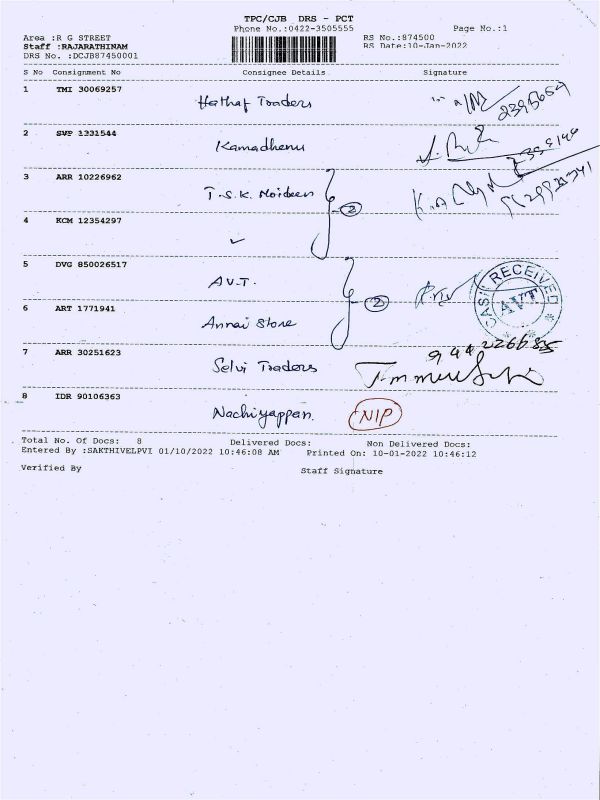 TPC/CJB DRS - PCT
Phone No.:0422-3505555
Page No.:1
Area :R G STREET
RS No.:874500
Staff :RAJARATHINAM
RS Date:10-Jan-2022
DRS No. :DCJB87450001
S No Consignment No Consignee Details Signature
1 TMI 30069257
Hathaf Traders
2395654
2 SVP 1331544
Kamadhenu
3 ARR 10226962
T.S.K. Moideen
2
4 KCM 12354297
5 DVG 850026517
A.V.T.
CASH RECEIVED
AVT
2
6 ART 1771941
Annai Store
7 ARR 30251623
Selvi Traders
8 IDR 90106363
Nachiyappan
NIP
Total No. Of Docs: 8 Delivered Docs: Non Delivered Docs:
Entered By :SAKTHIVELPVI 01/10/2022 10:46:08 AM Printed On: 10-01-2022 10:46:12
Verified By Staff Signature